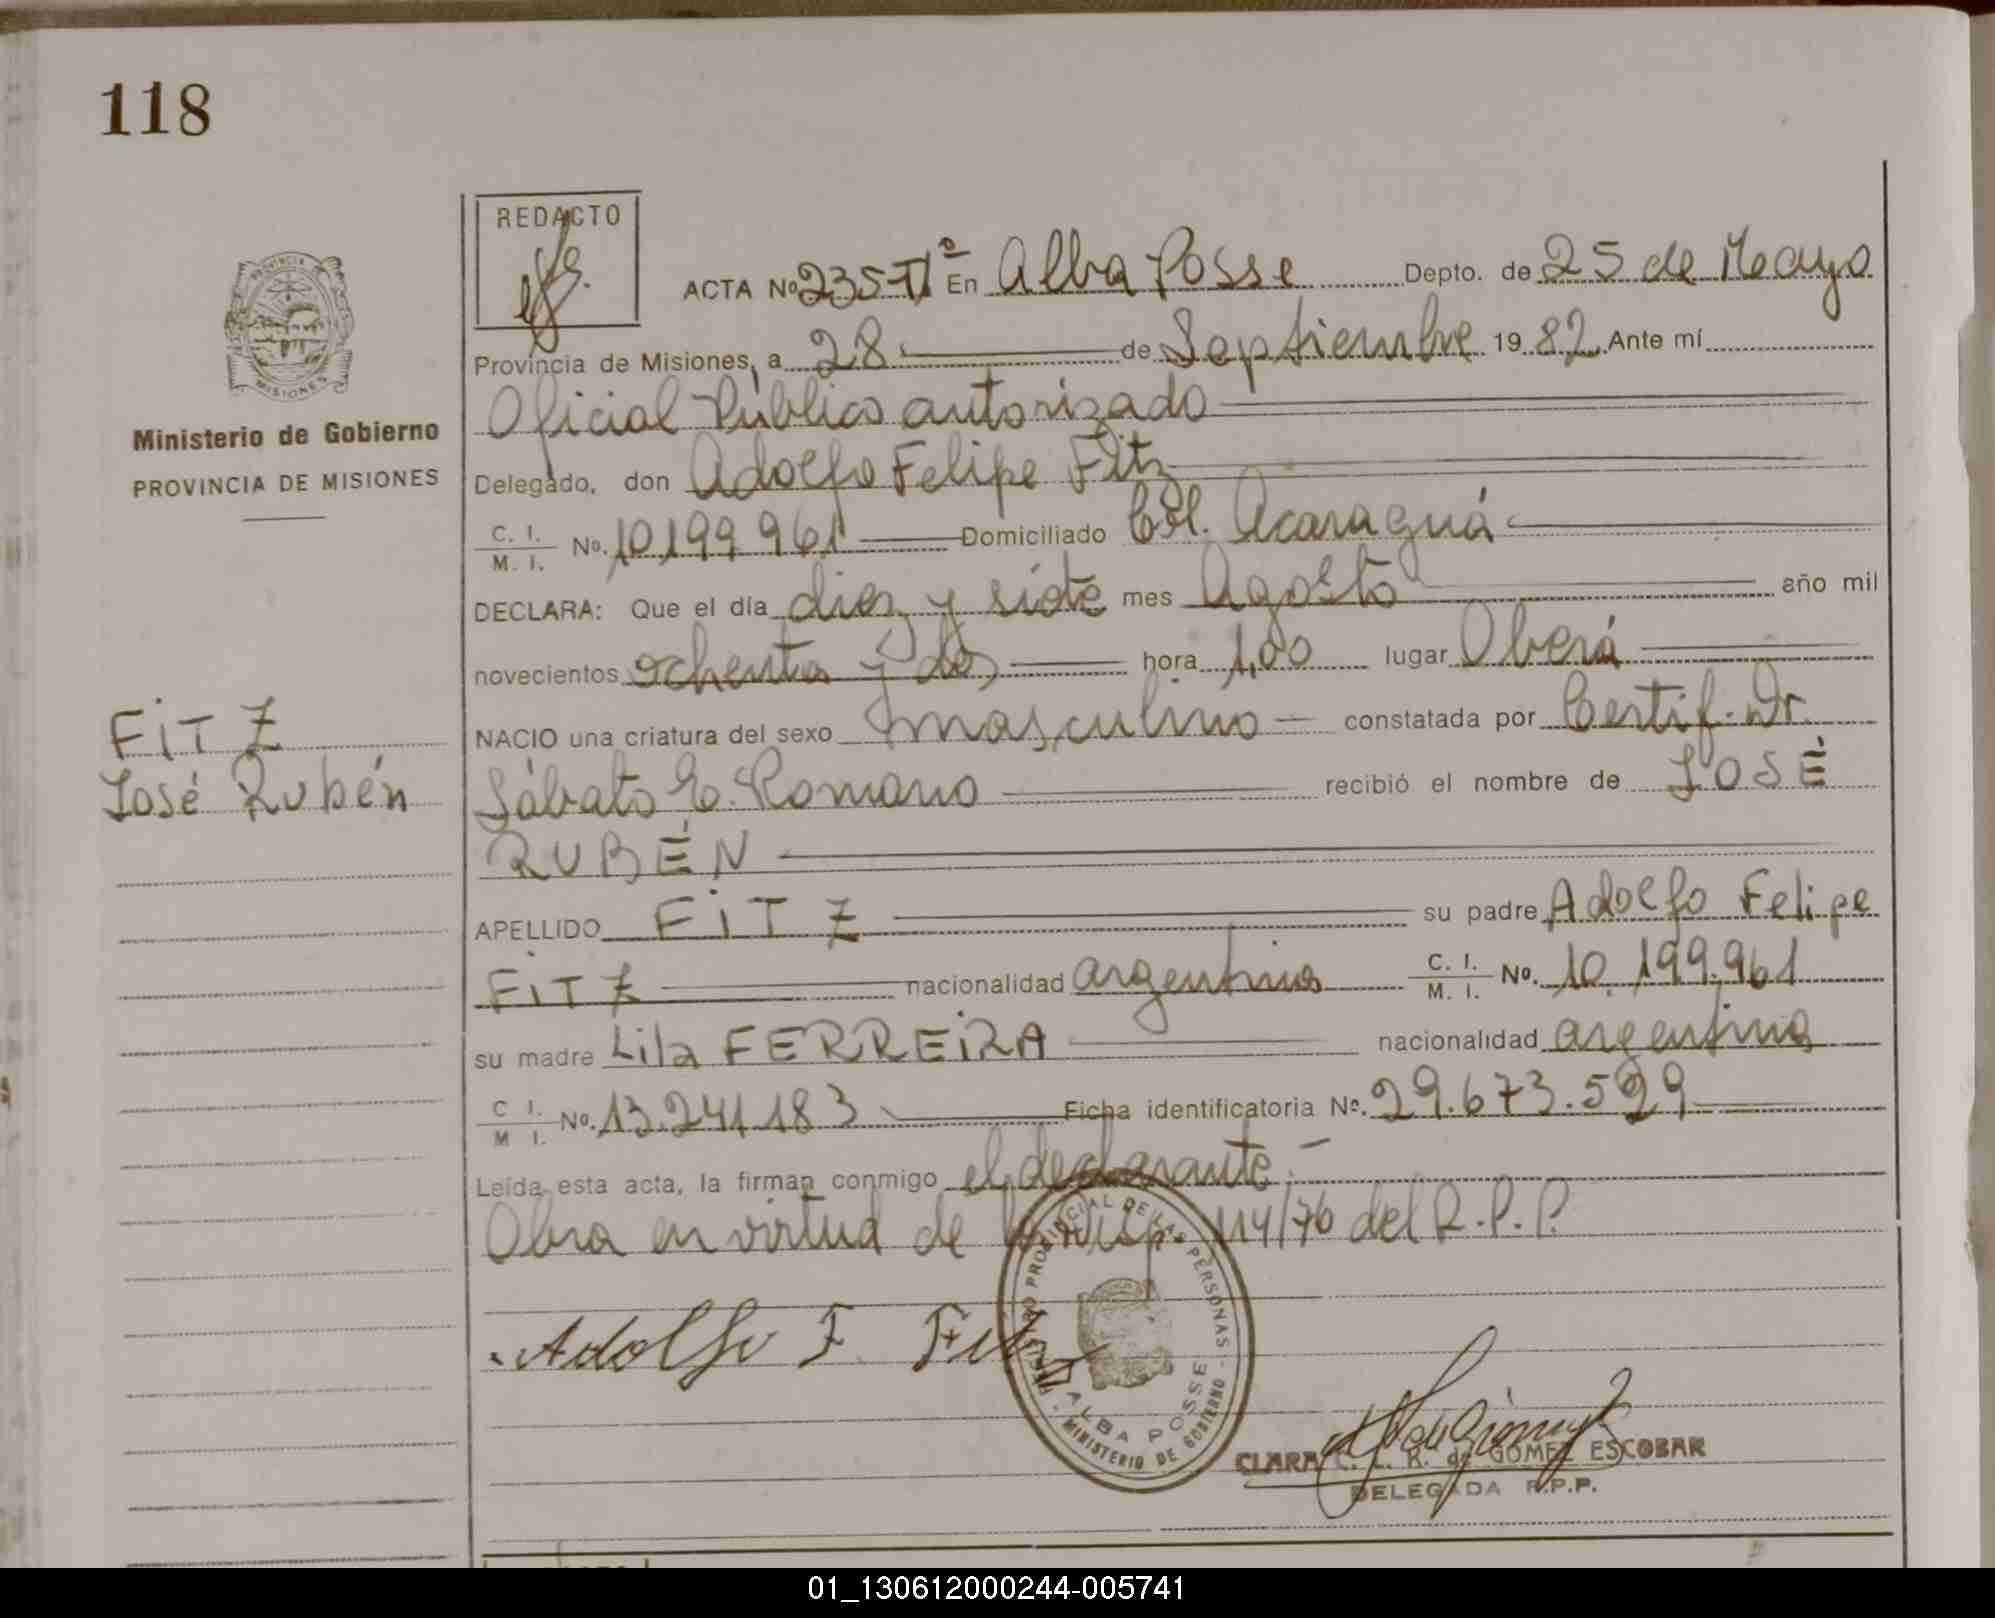 118
REDACTO
ACTA Nº 235-Tº En Alba Posse Depto. de 25 de Mayo
Provincia de Misiones, a 28 de Septiembre 1982 Ante mí
Oficial Público autorizado
Delegado, don Adolfo Felipe Fitz
C. I. / M. I. Nº. 10199961 Domiciliado Col. Acaraguá
DECLARA: Que el día diez y siete mes Agosto año mil
novecientos ochenta y dos hora 1,00 lugar Oberá
NACIO una criatura del sexo masculino constatada por Certif. Dr.
Sábato E. Romano recibió el nombre de JOSÉ
RUBÉN
APELLIDO FITZ su padre Adolfo Felipe
FITZ nacionalidad argentina C. I. / M. I. Nº. 10.199.961
su madre Lila FERREIRA nacionalidad argentina
C I. / M I. Nº. 13.241.183 Ficha identificatoria Nº. 29.673.529
Leída esta acta, la firman conmigo el declarante.-
Obra en virtud de Disp. 114/76 del R.P.P.
Adolfo F. Fitz
REGISTRO PROVINCIAL DE LAS PERSONAS - MINISTERIO DE GOBIERNO -
ALBA POSSE
CLARA C. L. R. de GOMEZ ESCOBAR
DELEGADA R.P.P.
PROVINCIA
MISIONES
Ministerio de Gobierno
PROVINCIA DE MISIONES
FITZ
José Rubén
01_130612000244-005741